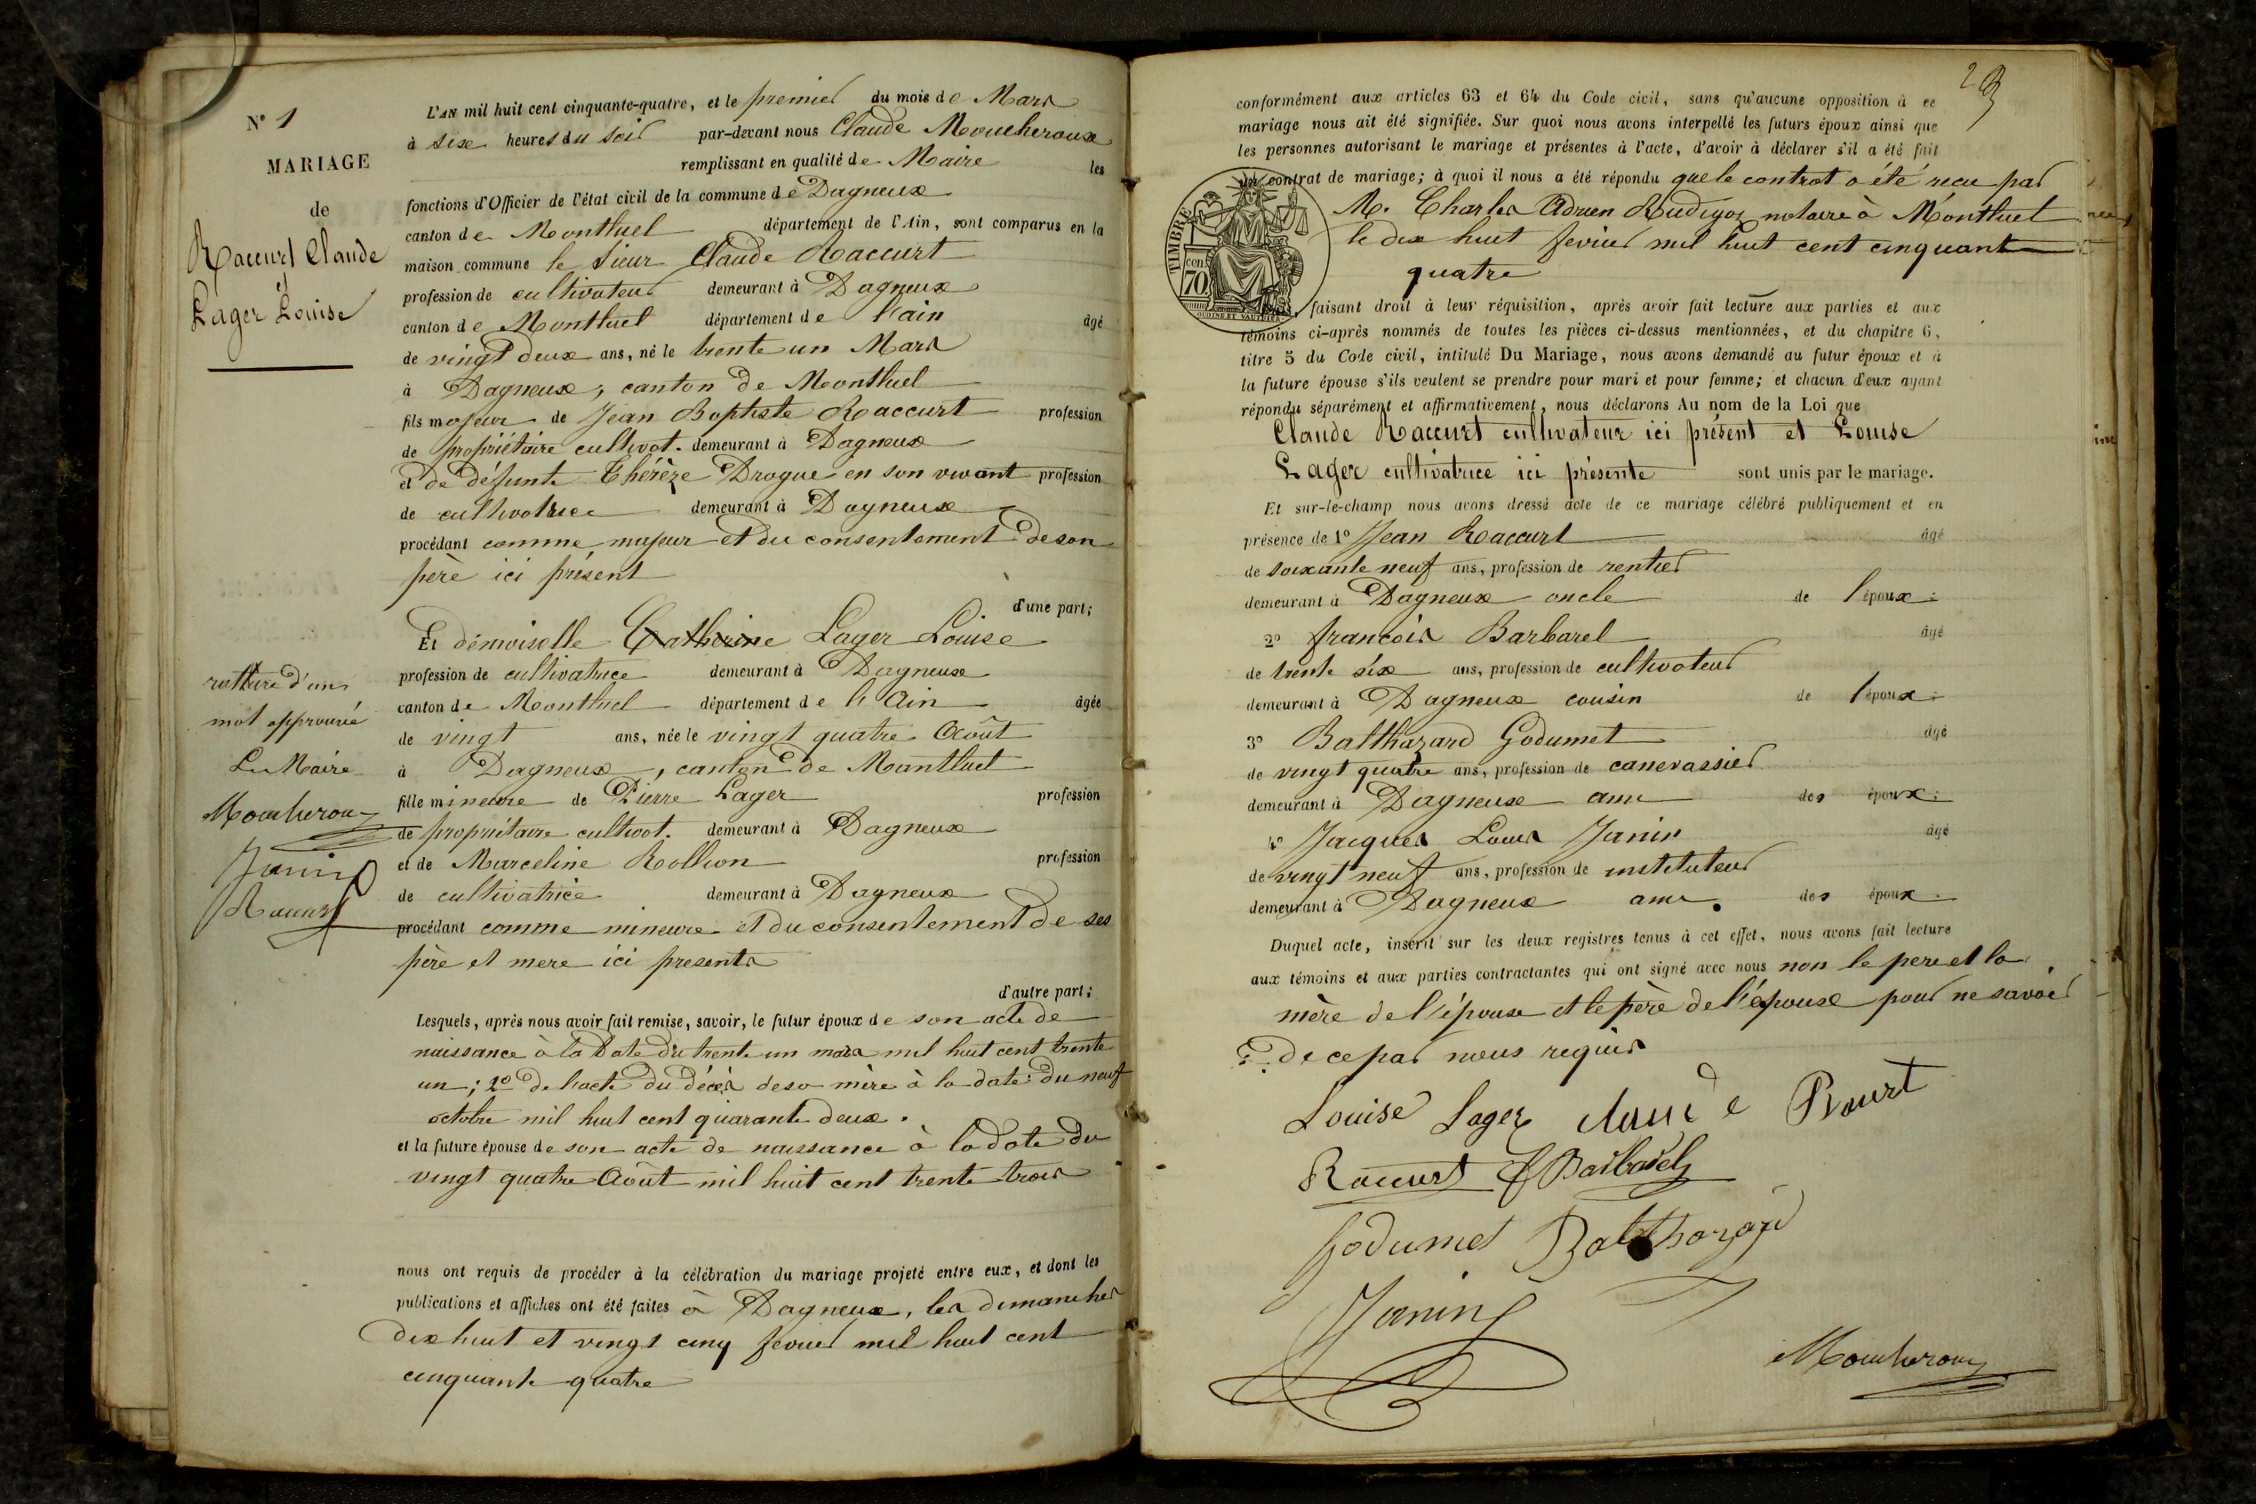 N° 1
MARIAGE
de
Raccurt Claude
et
Lager Louise
L'AN mil huit cent cinquante-quatre, et le premier du mois de Mars
à six heures du soir par-devant nous Claude Moucheroux
remplissant en qualité de Maire les
fonctions d'Officier de l'état civil de la commune de Dagneux
canton de Montluel département de l'Ain, sont comparus en la
maison commune le Sieur Claude Raccurt
profession de cultivateur demeurant à Dagneux
canton de Montluel département de l'ain âgé
de vingt deux ans, né le trente un Mars
à Dagneux, canton de Montluel
fils majeur de Jean Baptiste Raccurt profession
de propriétaire cultivat. demeurant à Dagneux
et de défunte Thérèze Drogue en son vivant profession
de cultivatrice demeurant à Dagneux
procédant comme majeur et du consentement de son
père ici présent
d'une part;
Et démoiselle Catherine Lager Louise
profession de cultivatrice demeurant à Dagneux
canton de Montluel département de l'Ain âgée
de vingt ans, née le vingt quatre Août
à Dagneux, canton de Montluel
fille mineure de Pierre Lager profession
de propriétaire cultivat. demeurant à Dagneux
et de Marceline Rollion profession
de cultivatrice demeurant à Dagneux
procédant comme mineure et du consentement de ses
père et mere ici presents
d'autre part;
rature d'un
mot approuvé
Le Maire
Moucheroux
Janin
Raccurt
Lesquels, après nous avoir fait remise, savoir, le futur époux de son acte de
naissance à la date du trente un mars mil huit cent trente
un; 2° de l'acte du décès de sa mère à la date du neuf
octobre mil huit cent quarante deux.
et la future épouse de son acte de naissance à la date du
vingt quatre Août mil huit cent trente trois
nous ont requis de procéder à la célébration du mariage projeté entre eux, et dont les
publications et affiches ont été faites à Dagneux, les dimanches
dix huit et vingt cinq fevrier mil huit cent
cinquante quatre
conformément aux articles 63 et 64 du Code civil, sans qu'aucune opposition à ce
mariage nous ait été signifiée. Sur quoi nous avons interpellé les futurs époux ainsi que
les personnes autorisant le mariage et présentes à l'acte, d'avoir à déclarer s'il a été fait
un contrat de mariage; à quoi il nous a été répondu que le contrat a été reçu par
M. Charles Adrien Rudigoz notaire à Montluel
le dix huit fevrier mil huit cent cinquante
quatre
TIMBRE
70 cen.
OUDINE ET VAUTHIER
faisant droit à leur réquisition, après avoir fait lecture aux parties et aux
témoins ci-après nommés de toutes les pièces ci-dessus mentionnées, et du chapitre 6,
titre 5 du Code civil, intitulé Du Mariage, nous avons demandé au futur époux et à
la future épouse s'ils veulent se prendre pour mari et pour femme; et chacun d'eux ayant
répondu séparément et affirmativement, nous déclarons Au nom de la Loi que
Claude Raccurt cultivateur ici présent et Louise
Lager cultivatrice ici présente sont unis par le mariage.
Et sur-le-champ nous avons dressé acte de ce mariage célébré publiquement et en
présence de 1° Jean Raccurt âgé
de soixante neuf ans, profession de rentier
demeurant à Dagneux oncle de l'époux;
2° francois Barbarel âgé
de trente six ans, profession de cultivateur
demeurant à Dagneux cousin de l'époux;
3° Balthazard Godumet âgé
de vingt quatre ans, profession de canevassier
demeurant à Dagneux ami des époux;
4° Jacques Louis Janin âgé
de vingt neuf ans, profession de instituteur
demeurant à Dagneux ami. des époux.
Duquel acte, inscrit sur les deux registres tenus à cet effet, nous avons fait lecture
aux témoins et aux parties contractantes qui ont signé avec nous non le pere et la
mère de l'épouse et le père de l'époux pour ne savoir
de ce par nous requis
Louise Lager Claude Racurt
Raccurt F Barbarel
Godumet Balthazard
Janin
Moucheroux